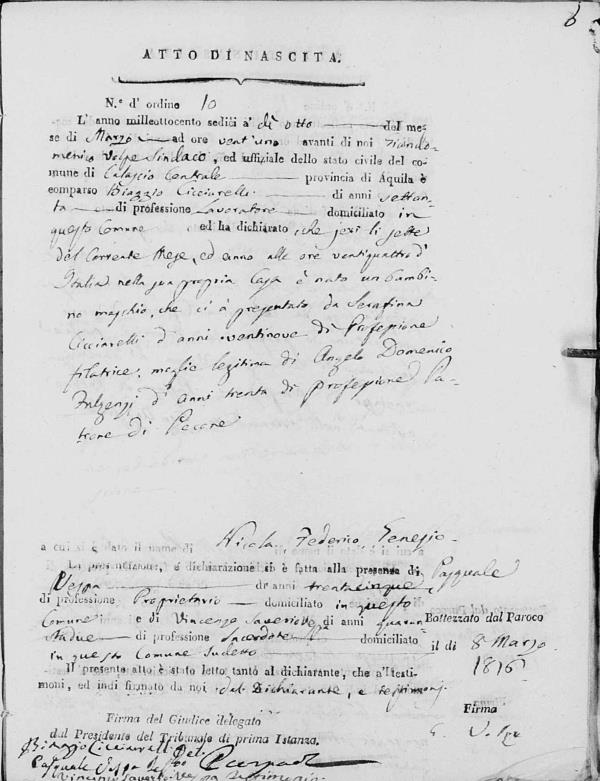 6
ATTO DI NASCITA.
N.° d' ordine 10
L' anno milleottocento sedici a' dì otto del me-
se di Marzo ad ore vent'uno avanti di noi Giando-
menico Volpe Sindaco, ed uffiziale dello stato civile del co-
mune di Calascio Centrale provincia di Aquila è
comparso Biaggio Cicciarelli di anni settan-
ta di professione Lavoratore domiciliato in
questo Comune ed ha dichiarato, che jeri li sette
del Corrente Mese, ed anno alle ore ventiquattro d'
Italia nella sua propria Casa è nato un bambi-
no maschio, che ci à presentato da Serafina
Cicciarelli d'anni ventinove di Professione
filatrice, moglie legitima di Angelo Domenico
Fulgenzj d'anni trenta di professione Pa-
trone di Pecore
a cui si è dato il nome di Nicola, Federico, Genesio
La presentazione, e dichiarazione si è fatta alla presenza di Pasquale
di anni trentacinque
di professione Proprietario domiciliato in questo
Comune e di Vincenzo Saverio di anni quaran
tadue di professione Sacerdote domiciliato
in questo Comune sudetto
Il presente atto è stato letto tanto al dichiarante, che a' testi-
moni, ed indi firmato da noi dal Dichiarante, e testimonj
Battezzato dal Paroco
il di 8 Marzo
1816
Firma
Firma del Giudice delegato
dal Presidente del Tribunale di prima Istanza.
Biaggio Cicciarelli Del.
Pasquale
Vincenzo Saverio